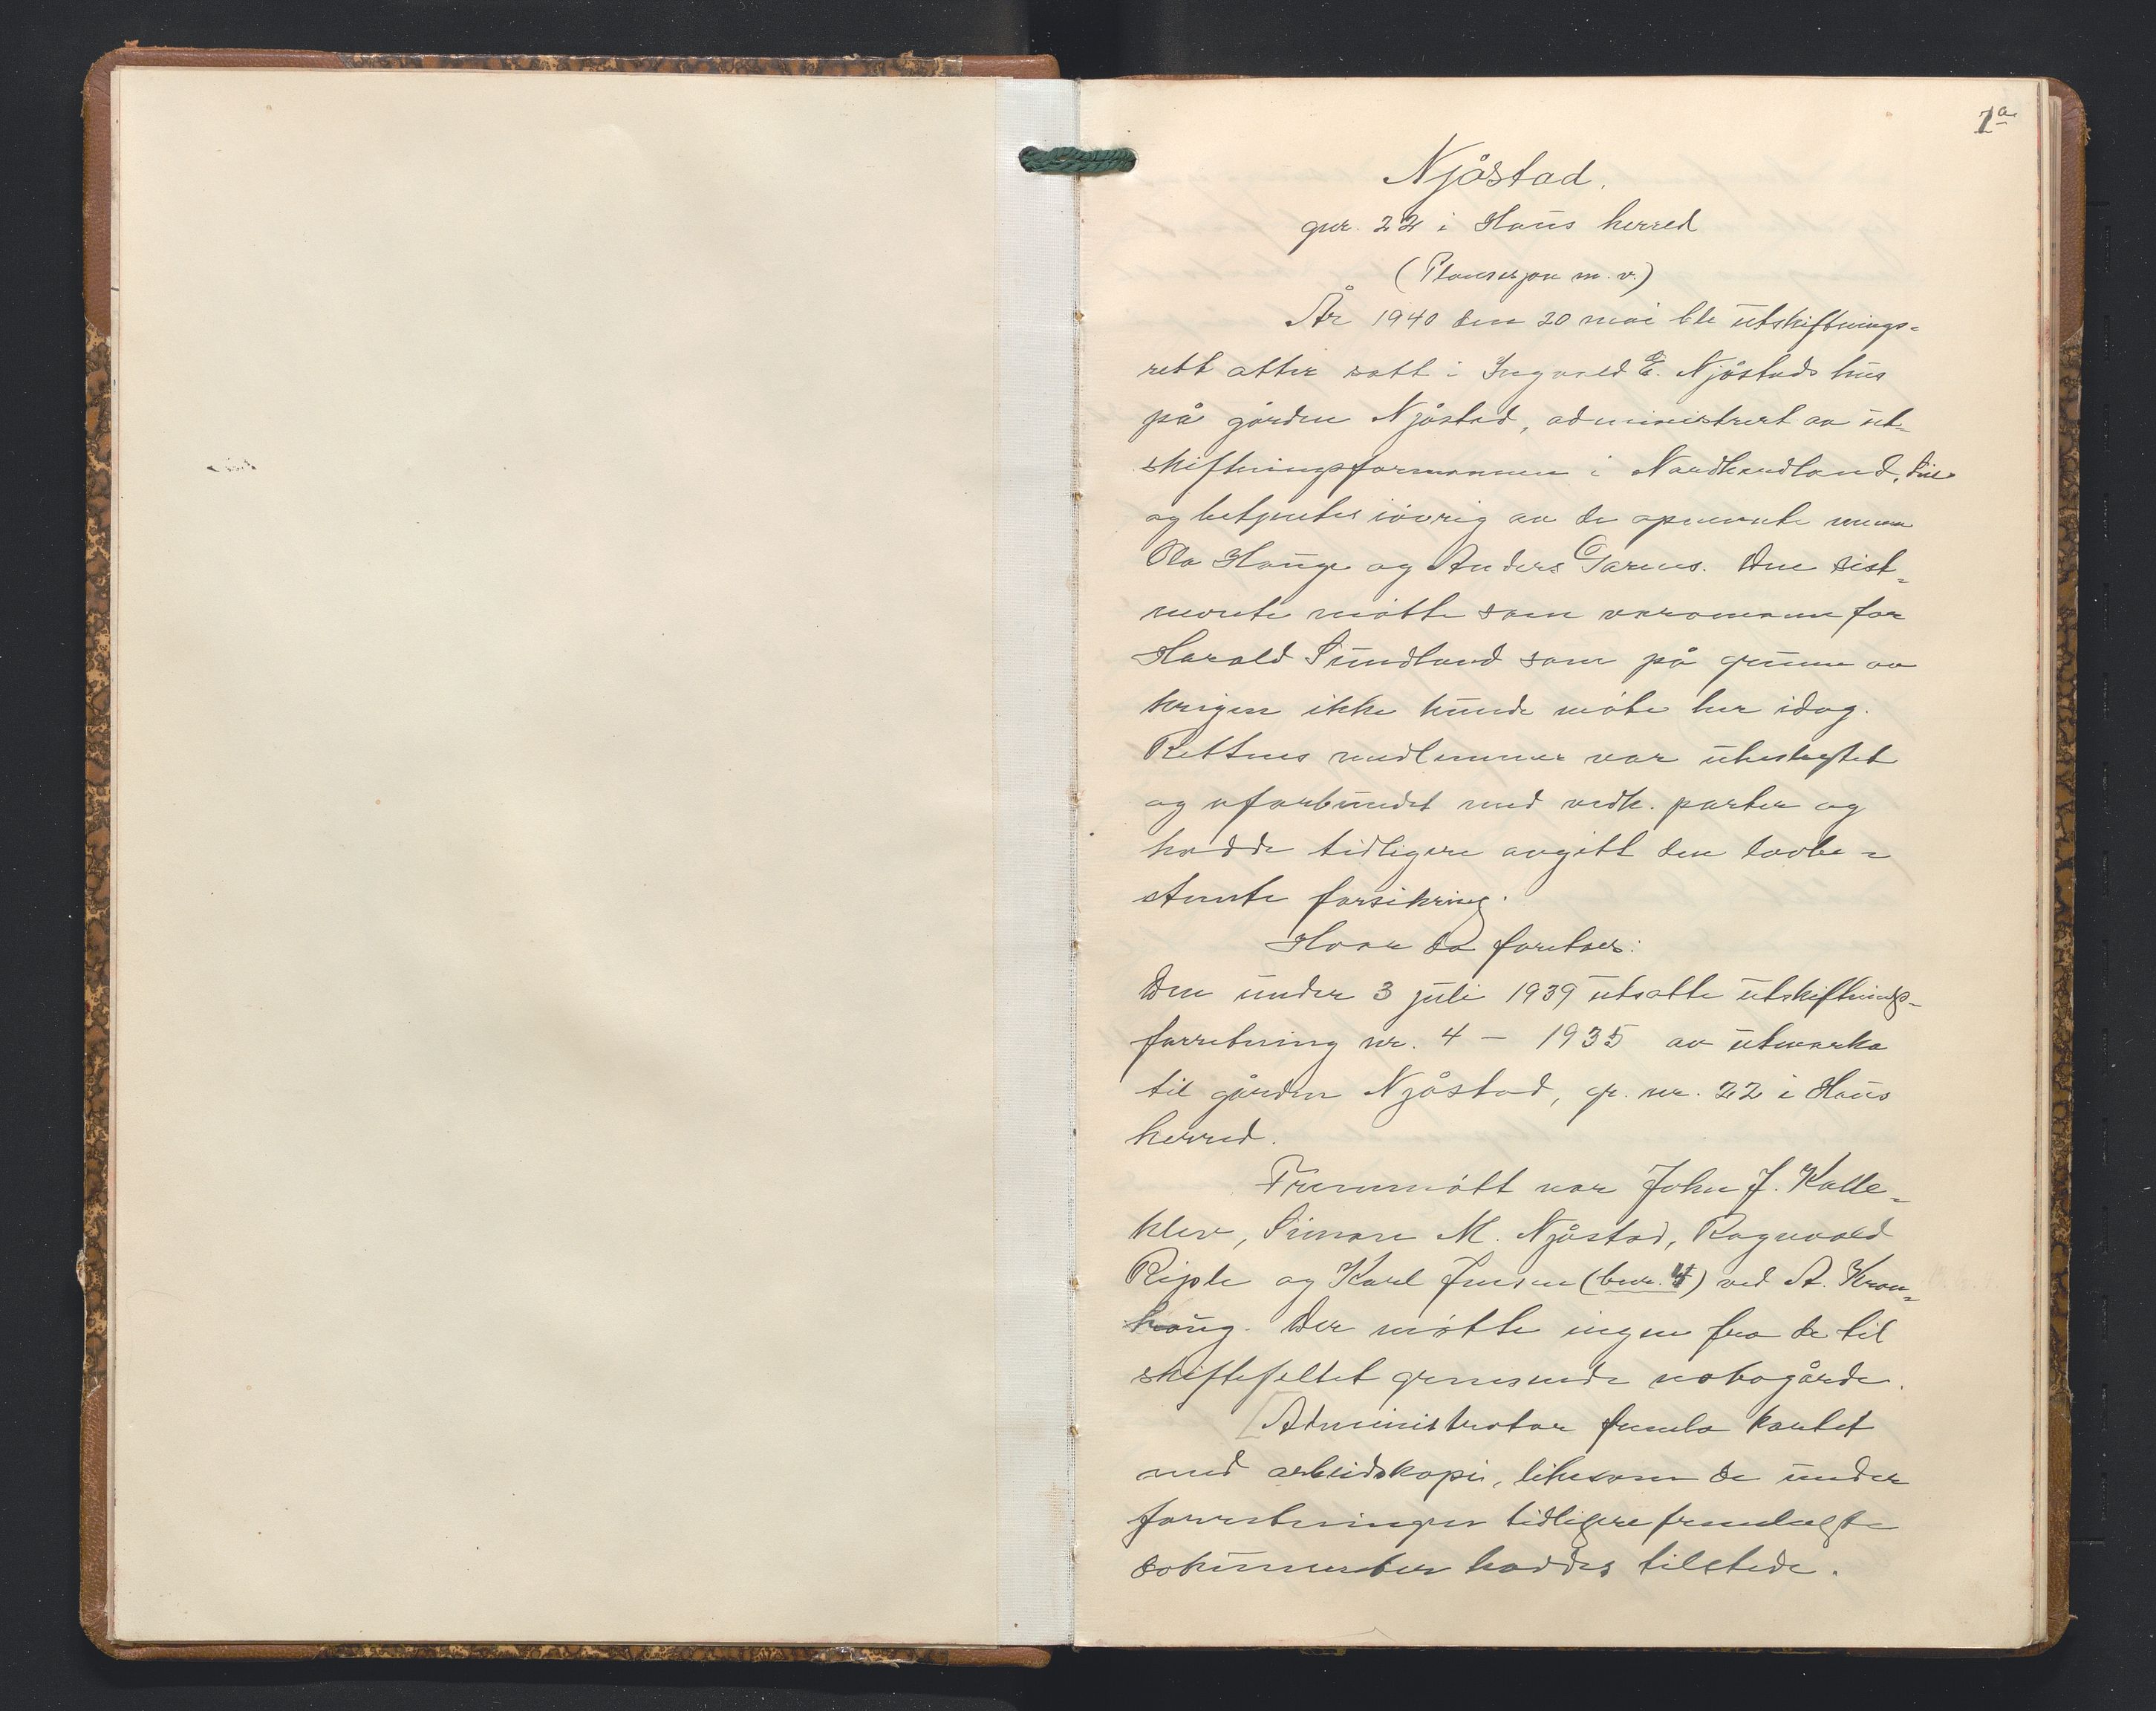 1a
Njåstad.
gnr. 22 i Haus herred
(Planskjøn m. v.)
År 1940 den 20 mai ble utskiftnings-
rett atter satt i Ingvald E. Njåstads hus
på gården Njåstad, administrert av ut-
skiftningsformannen i Nordhordland,
og betjentes iøvrig av de opnevnte menn
Ola Hauge og Anders Garnes. Den sist-
nevnte møtte som varamann for
Harald Sundland som på grunn av
krigen ikke kunde møte her idag.
Rettens medlemmer var ubeslegtet
og uforbundet med vedk. parter og
hadde tidligere avgitt den lovbe-
stemte forsikring.
Hvor da foretoes:
Den under 3 juli 1939 utsatte utskiftnings-
forretning nr. 4 - 1935 av utmarka
til gården Njåstad, gr. nr. 22 i Haus
herred.
Fremmøtt var John J. Kalle-
klev, Simon M. Njåstad, Ragnvald
Riple og Karl Jensen (bnr. 4) ved A. Kron-
haug. Der møtte ingen fra de til
skiftefeltet grensende nabogårde.
[Administrator fremla kartet
med arbeidskopi, likesom de under
forretningen tidligere fremlagte
dokumenter haddes tilstede.